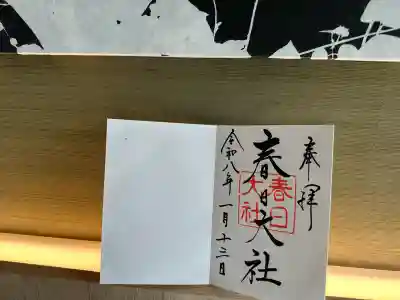 奉拝
春日大社
春日大社
令和八年一月十二日